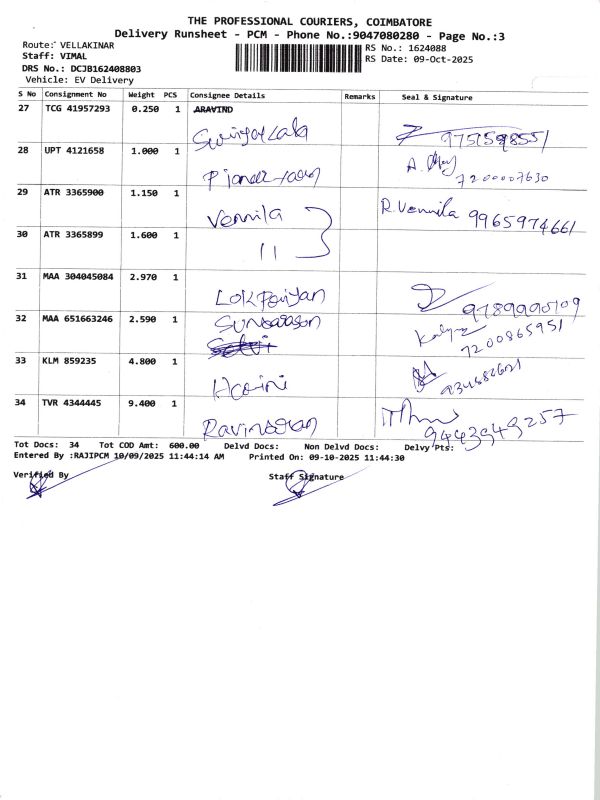 THE PROFESSIONAL COURIERS, COIMBATORE
Delivery Runsheet - PCM - Phone No.:9047080280 - Page No.:3
Route: VELLAKINAR
RS No.: 1624088
Staff: VIMAL
RS Date: 09-Oct-2025
DRS No.: DCJB162408803
Vehicle: EV Delivery
S No Consignment No Weight PCS Consignee Details Remarks Seal & Signature
27 TCG 41957293 0.250 1 ARAVIND
28 UPT 4121658 1.000 1
7200007630
29 ATR 3365900 1.150 1 Vennila R. Vennila 9965974661
30 ATR 3365899 1.600 1 11
31 MAA 304045084 2.970 1
32 MAA 651663246 2.590 1
7200865951
33 KLM 859235 4.800 1 Harini
34 TVR 4344445 9.400 1
9443949257
Tot Docs: 34 Tot COD Amt: 600.00 Delvd Docs: Non Delvd Docs: Delvy Pts:
Entered By :RAJIPCM 10/09/2025 11:44:14 AM Printed On: 09-10-2025 11:44:30
Verified By Staff Signature